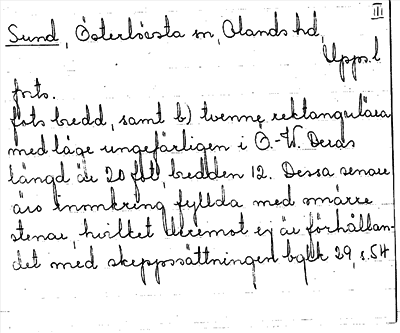 III
Sund, Österlövsta sn, Olands hd,
Upps.l
forts.
fots bredd, samt b) tvenne rektangulära
med läge ungefärligen i Ö.-W. Deras
längd är 20 fot, bredden 12. Dessa senare
äro inomkring fyllda med smärre
stenar, hvilket deremot ej är förhållan-
det med skeppssättningen bglk 29, s.54